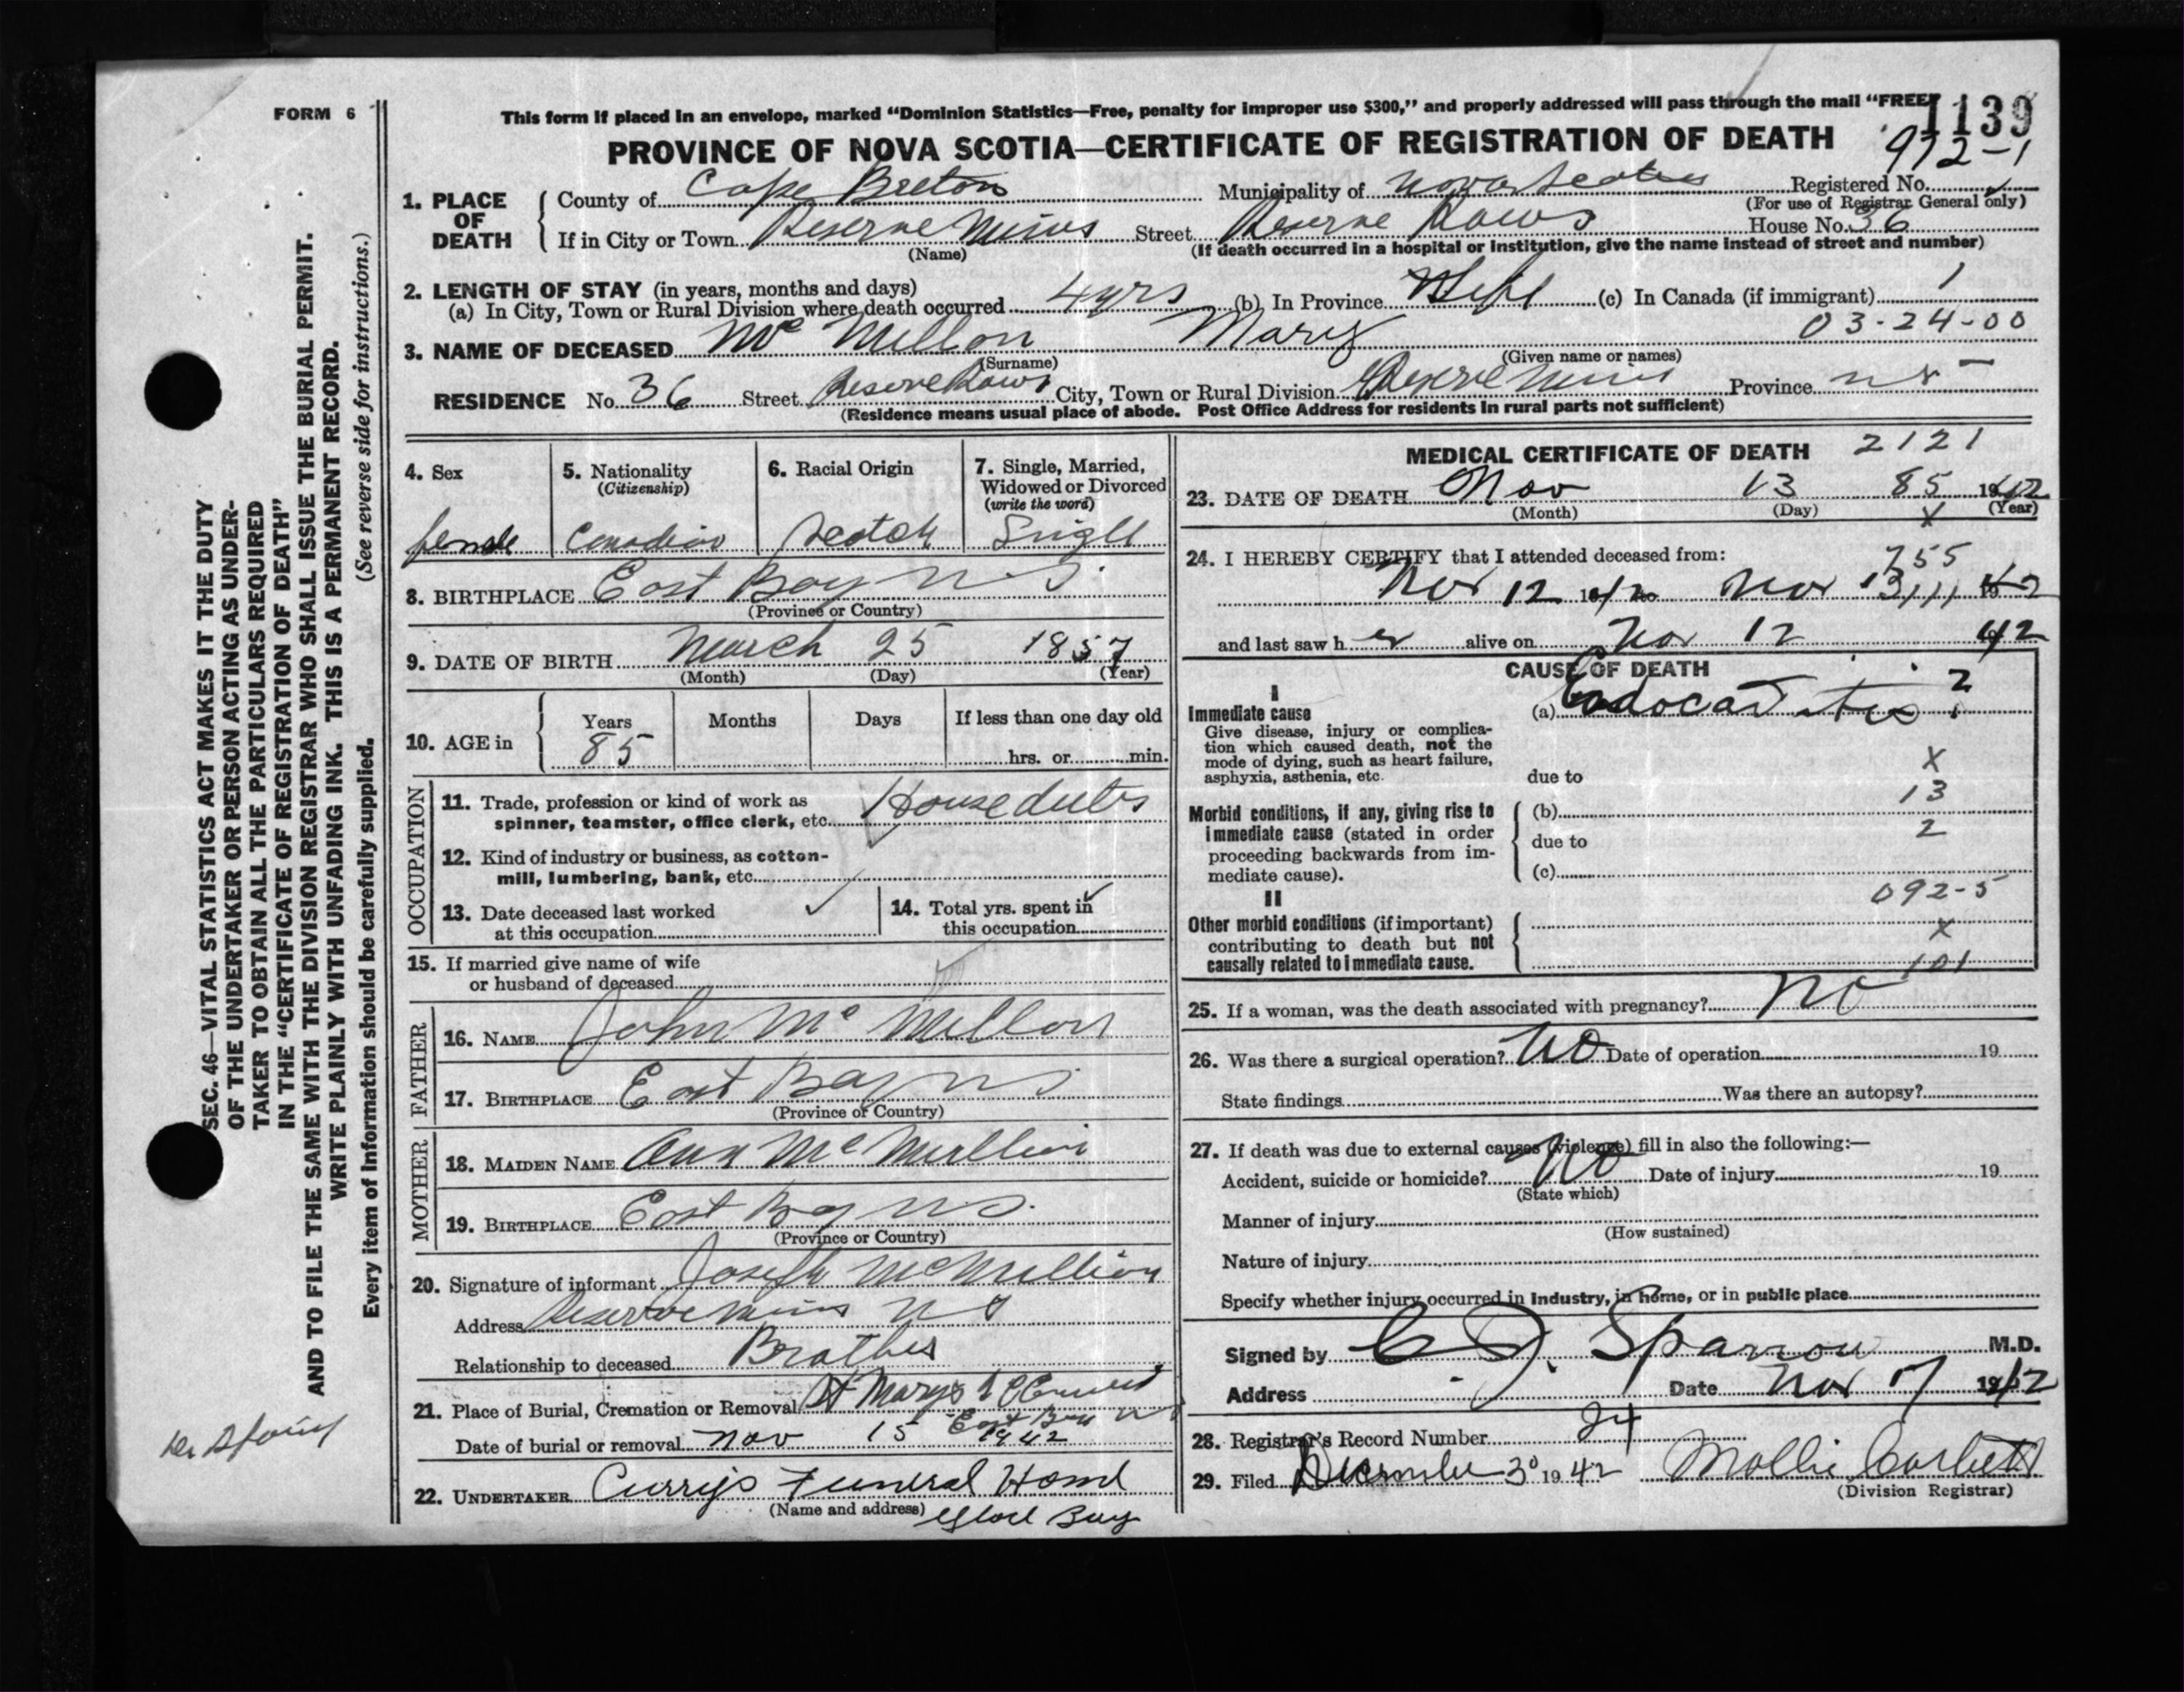 FORM 6
This form if placed in an envelope, marked “Dominion Statistics—Free, penalty for improper use $300,” and properly addressed will pass through the mail “FREE”
1139
PROVINCE OF NOVA SCOTIA—CERTIFICATE OF REGISTRATION OF DEATH
972-1
1. PLACE OF DEATH
County of Cape Breton Municipality of Nova Scotia Registered No.
(For use of Registrar General only)
If in City or Town Reserve Mines Street Reserve Rows House No. 36
(Name) (If death occurred in a hospital or institution, give the name instead of street and number)
2. LENGTH OF STAY (in years, months and days)
(a) In City, Town or Rural Division where death occurred 4 yrs (b) In Province Life (c) In Canada (if immigrant) 1
03-24-00
3. NAME OF DECEASED Mc Millon Mary
(Surname) (Given name or names)
RESIDENCE No. 36 Street Reserve Rows City, Town or Rural Division Reserve Mines Province N S
(Residence means usual place of abode. Post Office Address for residents in rural parts not sufficient)
4. Sex
female
5. Nationality
(Citizenship)
Canadian
6. Racial Origin
Scotch
7. Single, Married, Widowed or Divorced
(write the word)
Single
8. BIRTHPLACE East Bay N.S.
(Province or Country)
9. DATE OF BIRTH March 25 1857
(Month) (Day) (Year)
10. AGE in
Years Months Days If less than one day old
85 hrs. or min.
OCCUPATION
11. Trade, profession or kind of work as
spinner, teamster, office clerk, etc. House duties
12. Kind of industry or business, as cotton-
mill, lumbering, bank, etc.
13. Date deceased last worked
at this occupation
14. Total yrs. spent in
this occupation
15. If married give name of wife
or husband of deceased
FATHER
16. NAME John Mc Millon
17. BIRTHPLACE East Bay N S
(Province or Country)
MOTHER
18. MAIDEN NAME Ann Mc
19. BIRTHPLACE East Bay N S.
(Province or Country)
20. Signature of informant Joseph McMillion
Address Reserve Mines N S
Relationship to deceased Brother
21. Place of Burial, Cremation or Removal St Marys
East Bay N S
Date of burial or removal Nov 15 1942
22. UNDERTAKER Currys Funeral Home
(Name and address) Glace Bay
MEDICAL CERTIFICATE OF DEATH 2121
23. DATE OF DEATH Nov 13 85 1942
(Month) (Day) (Year)
X
24. I HEREBY CERTIFY that I attended deceased from:
755
Nov 12 1942 Nov 13 1942
and last saw her alive on Nov 12 42
CAUSE OF DEATH
I
Immediate cause
Give disease, injury or complica-
tion which caused death, not the
mode of dying, such as heart failure,
asphyxia, asthenia, etc.
(a) Endocarditis 2
due to X
13
Morbid conditions, if any, giving rise to
immediate cause (stated in order
proceeding backwards from im-
mediate cause).
(b)
due to 2
(c)
092-5
II
Other morbid conditions (if important)
contributing to death but not
causally related to immediate cause.
X
101
25. If a woman, was the death associated with pregnancy? No
26. Was there a surgical operation? No Date of operation 19
State findings Was there an autopsy?
27. If death was due to external causes (violence) fill in also the following:—
Accident, suicide or homicide? No Date of injury 19
(State which)
Manner of injury
(How sustained)
Nature of injury
Specify whether injury occurred in Industry, in home, or in public place
Signed by C J. Sparrow M.D.
Address Date Nov 17 1942
28. Registrar's Record Number 24
29. Filed December 3 1942 Mollie Corbett
(Division Registrar)
SEC. 46—VITAL STATISTICS ACT MAKES IT THE DUTY
OF THE UNDERTAKER OR PERSON ACTING AS UNDER-
TAKER TO OBTAIN ALL THE PARTICULARS REQUIRED
IN THE “CERTIFICATE OF REGISTRATION OF DEATH”
AND TO FILE THE SAME WITH THE DIVISION REGISTRAR WHO SHALL ISSUE THE BURIAL PERMIT.
WRITE PLAINLY WITH UNFADING INK. THIS IS A PERMANENT RECORD.
(See reverse side for instructions.)
Every item of Information should be carefully supplied.